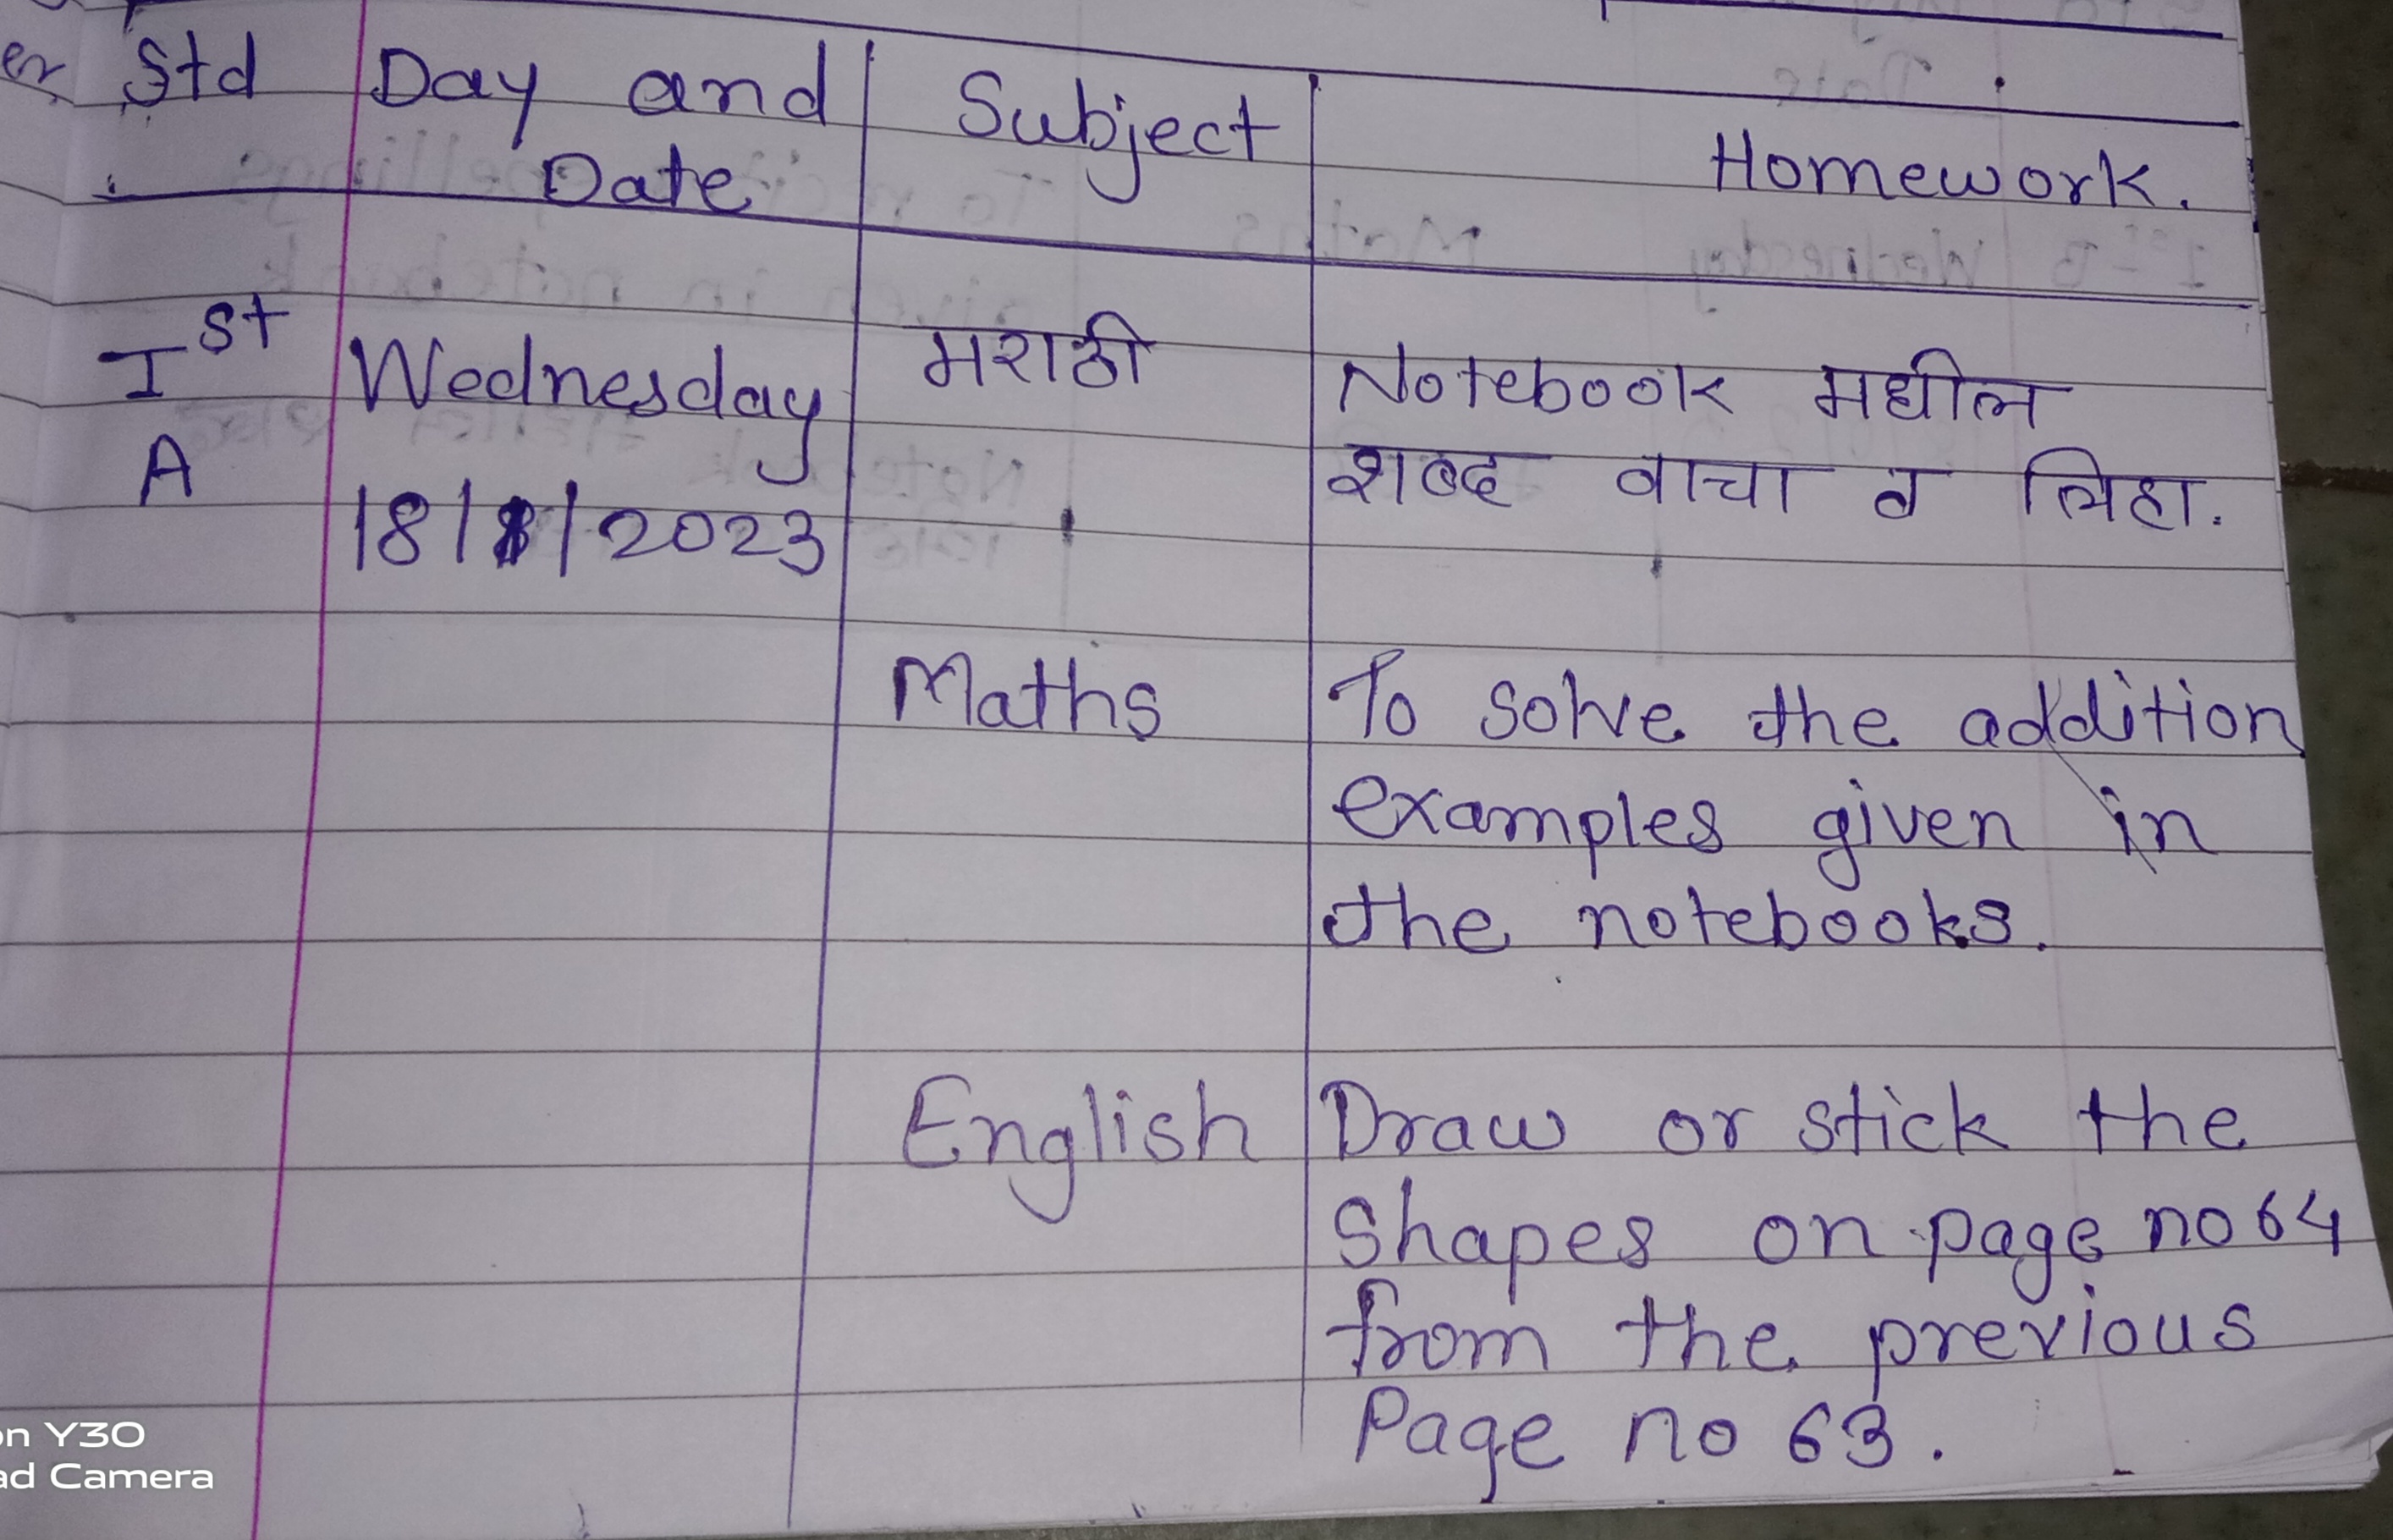 Std Day and Subject
Date Homework.
Ist Wednesday मराठी Notebook मधील
A शब्द वाचा व लिहा.
18/1/2023
Maths To solve the addition
examples given in
the notebooks.
English Draw or stick the
Shapes on page no 64
from the previous
Page no 63.
Y30
Camera